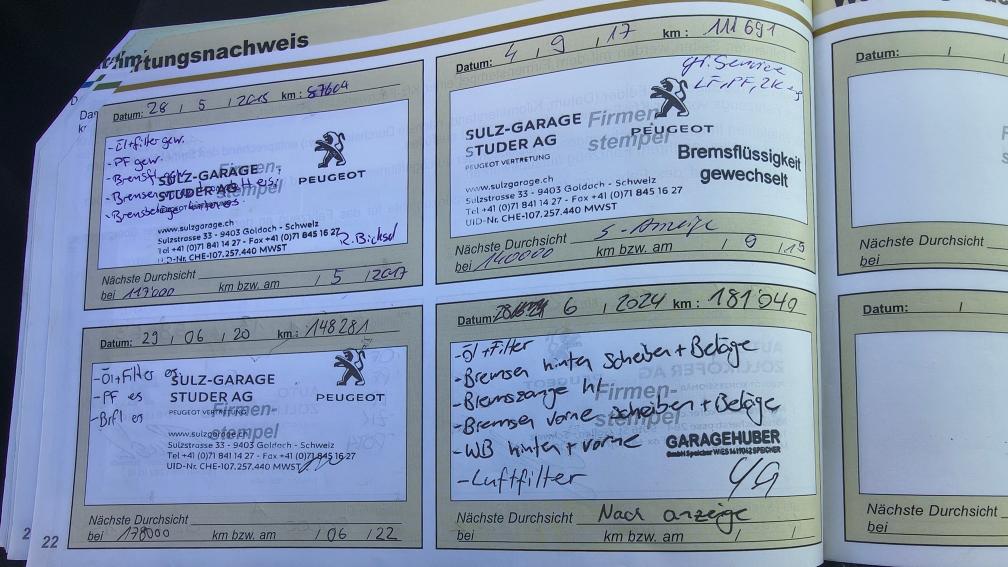 rtungsnachweis
Datum: 28 / 5 / 2015 km: 87604
- Öl+filter gew.
- PF gew.
SULZ-GARAGE
STUDER AG
Firmen-
stempel
PEUGEOT
www.sulzgarage.ch
Sulzstrasse 33 - 9403 Goldach - Schweiz
Tel +41 (0)71 841 14 27 - Fax +41 (0)71 845 16 27
UID-Nr. CHE-107.257.440 MWST
Nächste Durchsicht
bei 117000 km bzw. am / 5 / 2017
Datum: 4 / 9 / 17 km: 111691
gr. Service
LF, PF, ZK
SULZ-GARAGE
STUDER AG
PEUGEOT VERTRETUNG
Firmen-
stempel
PEUGEOT
Bremsflüssigkeit
gewechselt
www.sulzgarage.ch
Sulzstrasse 33 - 9403 Goldach - Schweiz
Tel +41 (0)71 841 14 27 - Fax +41 (0)71 845 16 27
UID-Nr. CHE-107.257.440 MWST
Nächste Durchsicht S-Anzeige
bei 140000 km bzw. am / 9 / 19
Datum: 29 / 06 / 20 km: 148281
- Öl+Filter es
- PF es
- Brfl es
SULZ-GARAGE
STUDER AG
PEUGEOT VERTRETUNG
Firmen-
stempel
PEUGEOT
www.sulzgarage.ch
Sulzstrasse 33 - 9403 Goldach - Schweiz
Tel +41 (0)71 841 14 27 - Fax +41 (0)71 845 16 27
UID-Nr. CHE-107.257.440 MWST
Nächste Durchsicht
bei 178000 km bzw. am / 06 / 22
Datum: 6 / 2024 km: 181040
- Öl+Filter
- Bremsen hinten Scheiben + Beläge
- Bremszange hl
- Bremsen vorne Scheiben + Beläge
- WB hinten + vorne
- Luftfilter
Firmen-
stempel
GARAGEHUBER
Nächste Durchsicht Nach anzeige
bei km bzw. am / /
22
Datum: /
Nächste Durchsicht
bei
Datum: /
Nächste Durchsicht
bei